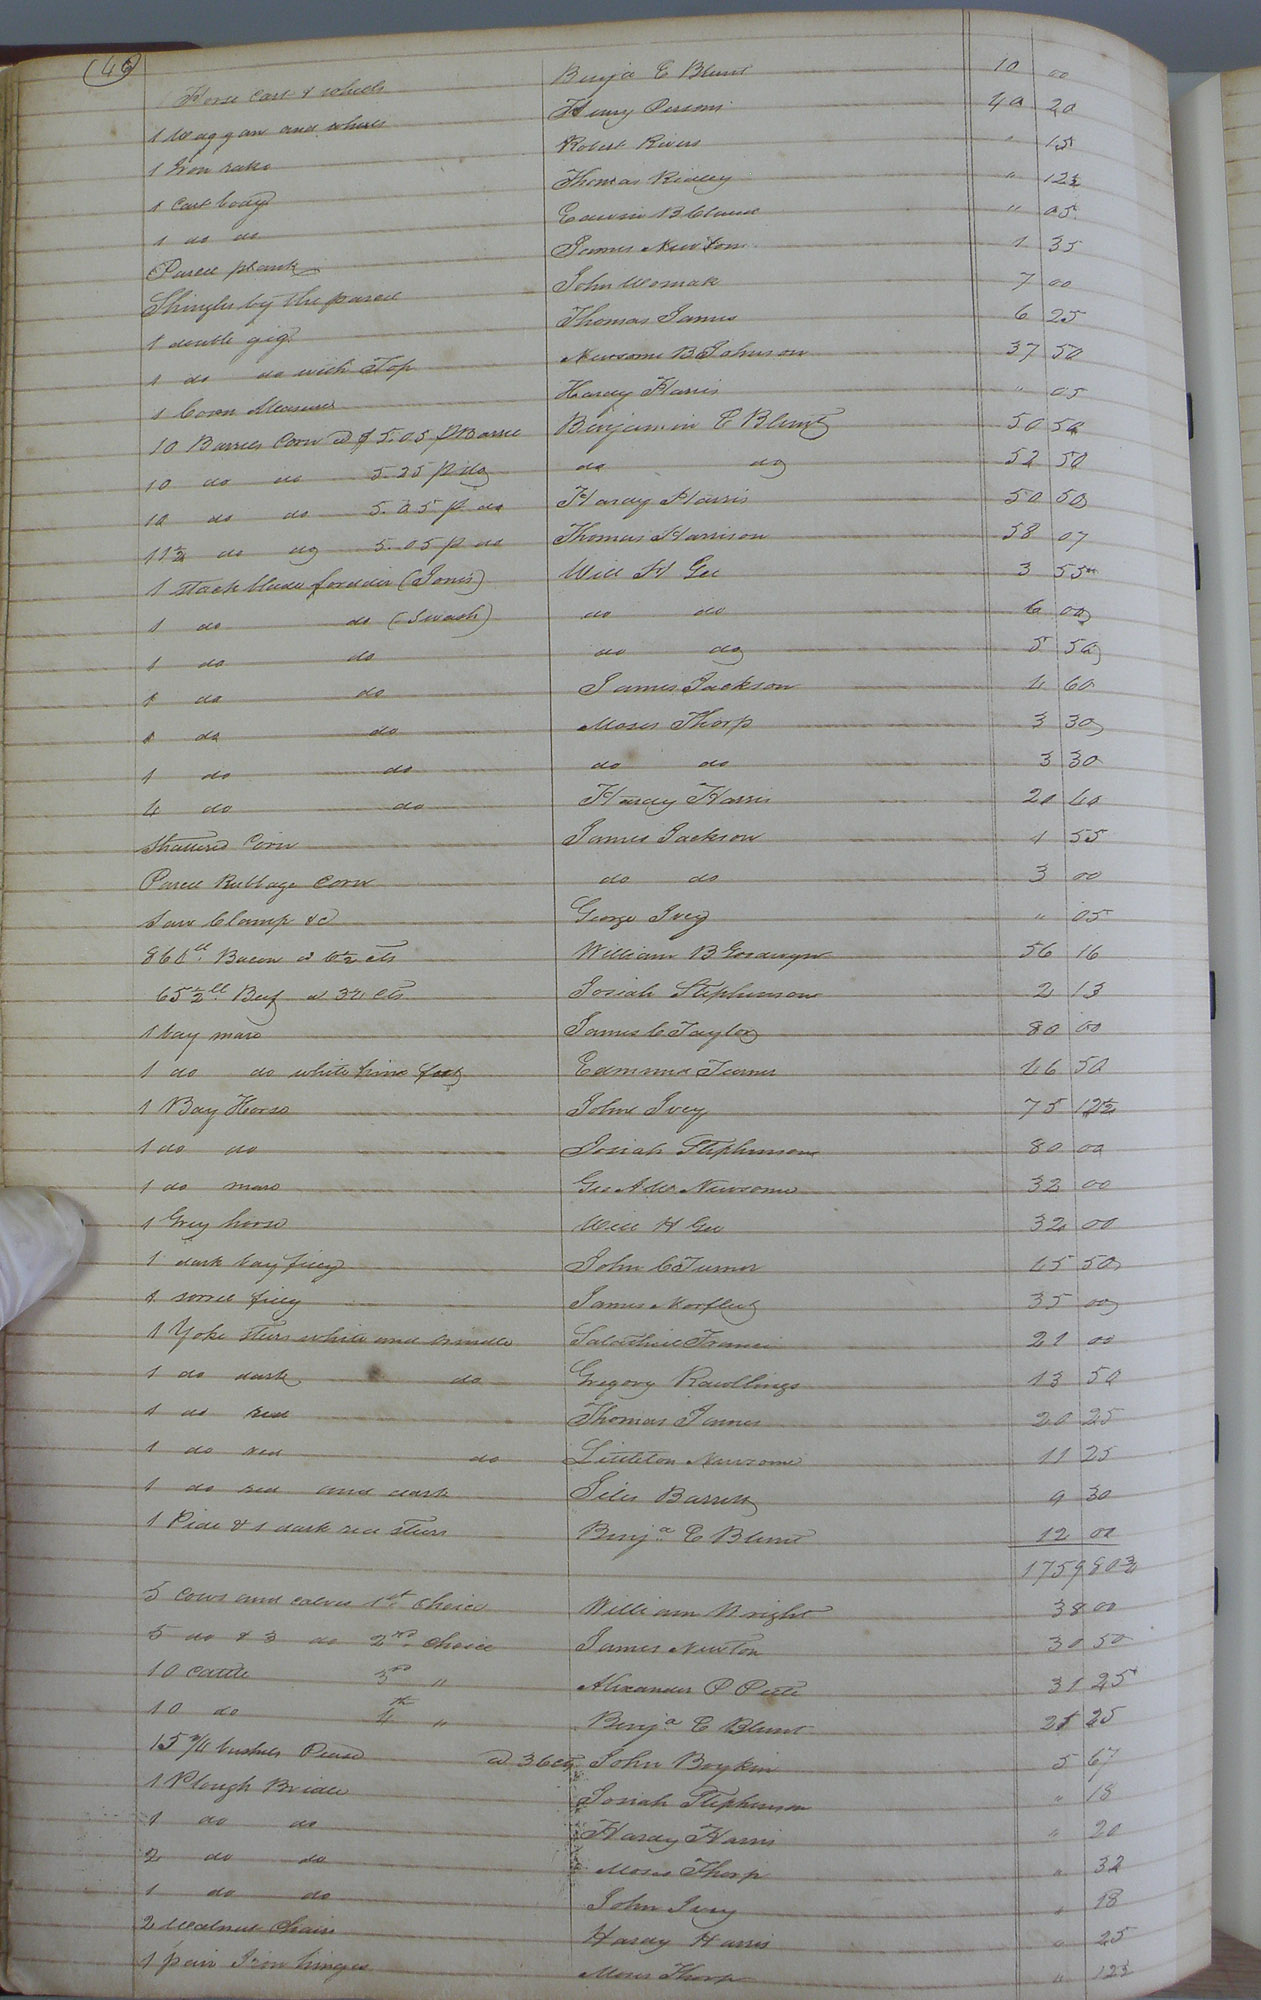 46
1 Horse Cart & wheels Benja E Blunt 10 00
1 Waggon and wheels Henry Persons 40 20
1 Iron rake Robert Rivers " 15
1 Cart body Thomas Ridley " 12½
1 do do Edwin B Claud " 05
Parcel plank James Newton 1 35
Shingles by the parcel John Womak 7 00
1 double gig Thomas James 6 25
1 do do with Top Newsome B Johnson 37 50
1 Corn Measure Hardy Harris " 05
10 Barrels Corn @ $5.05 p Barrel Benjamin E Blunt 50 50
10 do do 5.25 p do do do 52 50
10 do do 5.05 p do Hardy Harris 50 50
11½ do do 5.05 p do Thomas Harrison 58 07
1 stack blade fodder (Jones) Will H Gee 3 55
1 do do (Swash) do do 6 00
1 do do do do 5 50
1 do do James Jackson 4 60
1 do do Moses Thorp 3 30
1 do do do do 3 30
4 do do Hardy Harris 20 40
Shattered Corn James Jackson 1 55
Parcel Rubbage Corn do do 3 00
Saw Clamp &c George Ivey " 05
861 ll. Bacon @ 6½ cts William B Goodwyn 56 16
65½ ll Beef @ 3¼ cts Josiah Stephenson 2 13
1 bay mare James C Taylor 80 00
1 do do white hind feet Edmund Turner 46 50
1 Bay Horse John Ivey 75 12½
1 do do Josiah Stephenson 80 00
1 do mare Geo A W Newsome 32 00
1 Grey horse Will H Gee 32 00
1 dark bay filly John C Turner 45 50
1 sorrel filly James Norfleet 35 00
1 Yoke steers white and brindle Salathiel Francis 21 00
1 do dark do Gregory Rawllings 13 50
1 do red Thomas James 20 25
1 do red do Littleton Newsome 11 25
1 do red and dark Giles Barrett 9 30
1 Pide & 1 dark red steers Benja E Blunt 12 00
1759 80¾
5 Cows and calves 1st Choice William Wright 38 00
5 do & 3 do 2nd Choice James Newton 30 50
10 Cattle 3rd " Alexander P Peete 31 25
10 do 4th " Benja E Blunt 21 25
15¾ bushels Pease @ 36 cts John Boykin 5 67
1 Plough Bridle Josiah Stephenson " 18
1 do do Hardy Harris " 20
2 do do Moses Thorp " 32
1 do do John Ivey " 18
2 Walnut Chairs Hardy Harris " 25
1 pair Iron hinges Moses Thorp " 12½